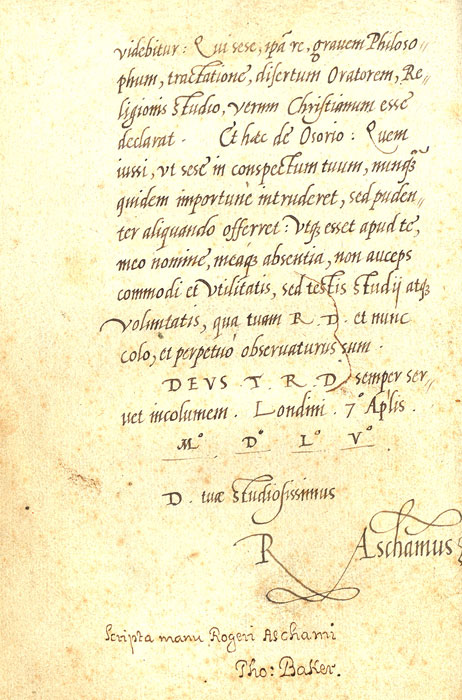 videbitur: Qui sese, ipā re, gravem Philoso=
phum, tractatione, disertum Oratorem, Re=
ligionis studio, verum Christianum esse
declarat. Et haec de Osorio: Quem
iussi, vt sese in conspectum tuum, nunq̃
quidem importunè intruderet, sed puden=
ter aliquando offerret: Vtq; esset apud te,
meo nomine, meaq; absentia, non auceps
commodi et Vtilitatis, sed testis studij atq;
Voluntatis, qua tuam R. D. et nunc
colo, et perpetuò observaturus sum.
DEVS . T. R. D. semper ser=
uet incolumem. Londini. 7º Aplis.
Mº Dº Lº Vº
D. tuæ studiosissimus
R Aschamus
Scripta manu Rogeri Aschami
Tho: Baker.